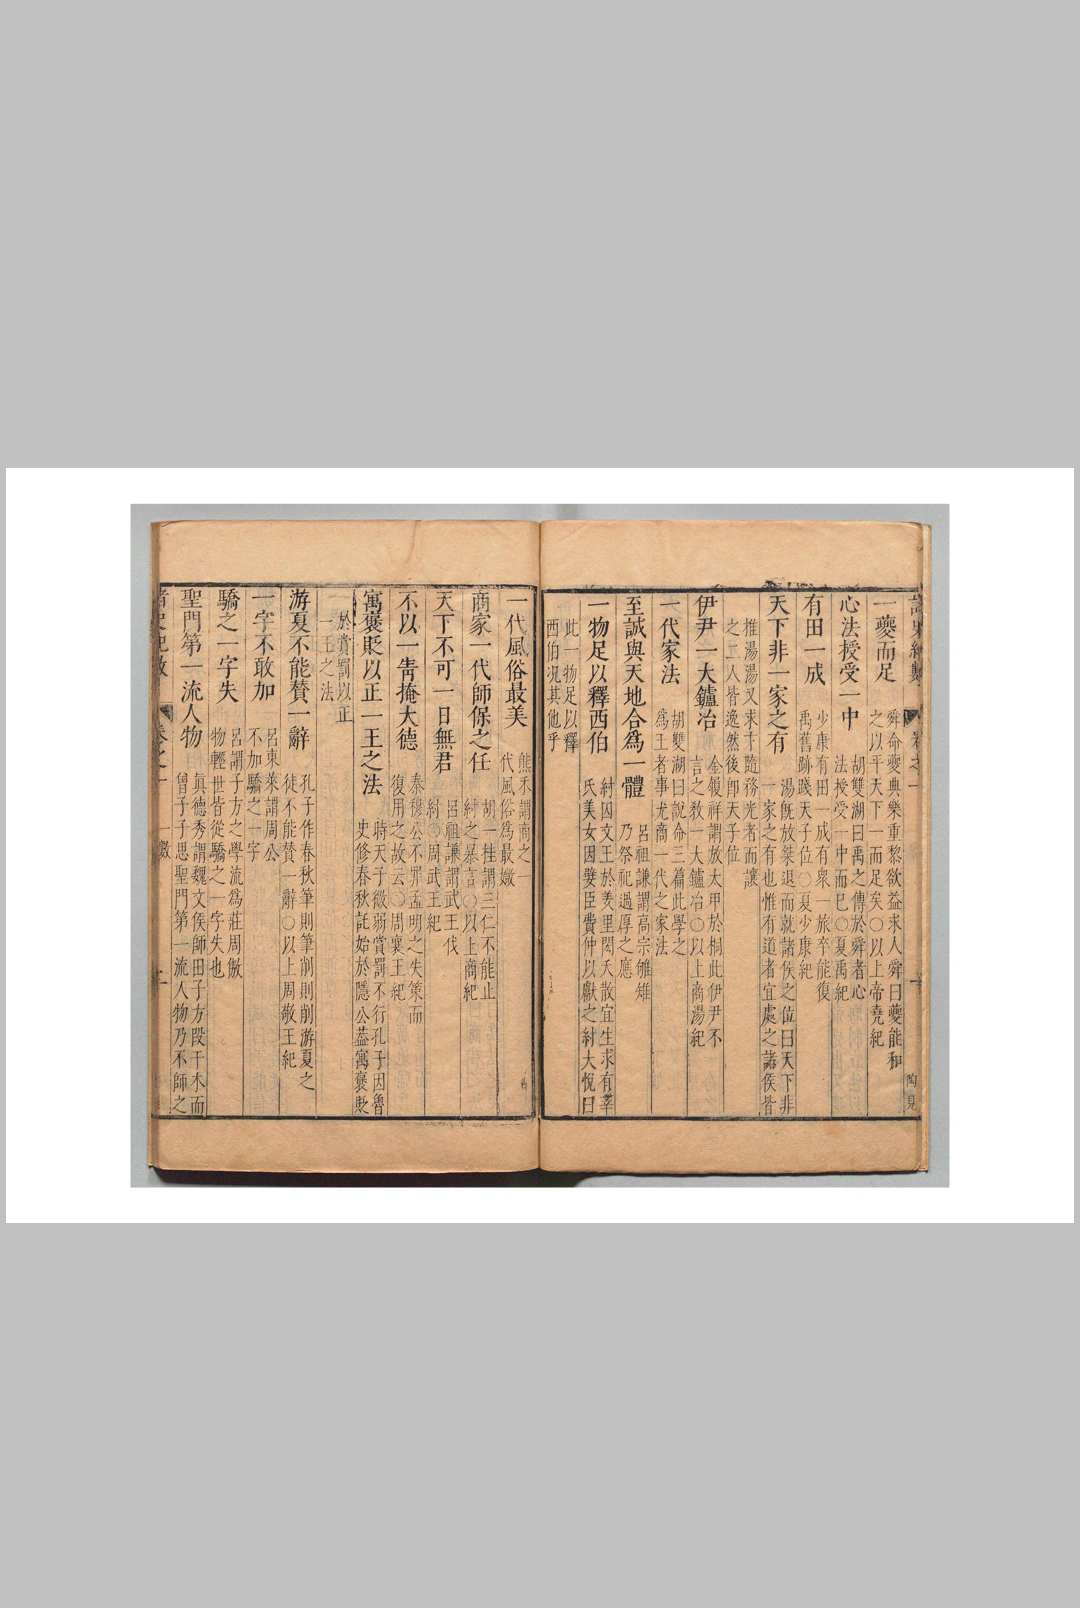 卷之一
陶見
一夔而足 舜命夔典樂重黎欲益求人舜曰夔能和
之以平天下一而足矣○以上帝堯紀
心法授受一中 胡雙湖曰禹之傳於舜者心
法授受一中而巳○夏禹紀
有田一成 少康有田一成有衆一旅卒能復
禹舊跡踐天子位○夏少康紀
天下非一家之有 湯旣放桀退而就諸侯之位曰天下非
一家之有也惟有道者宜處之諸侯皆
推湯湯又求卞隨務光者而讓
之二人皆逸然後卽天子位
伊尹一大鑪冶 金履祥謂放太甲於桐此伊尹不
言之敎一大鑪冶○以上商湯紀
一代家法 胡雙湖曰說命三篇此學之
爲王者事尤商一代之家法
至誠與天地合爲一體 呂祖謙謂高宗雊雉
乃祭祀過厚之應
一物足以釋西伯 紂囚文王於羑里閎夭散宜生求有莘
氏美女因嬖臣費仲以獻之紂大悅曰
此一物足以釋
西伯况其他乎
一代風俗最美 熊禾謂商之一
代風俗爲最媺
商家一代師保之任 胡一桂謂三仁不能止
紂之暴言○以上商紀
天下不可一日無君 呂祖謙謂武王伐
紂○周武王紀
不以一眚掩大德 秦穆公不罪孟明之失策而
復用之故云○周襄王紀
寓褒貶以正一王之法 時天子微弱賞罰不行孔子因魯
史修春秋託始於隱公葢寓褒貶
於賞罰以正
一王之法
游夏不能贊一辭 孔子作春秋筆則筆削則削游夏之
徒不能贊一辭○以上周敬王紀
一字不敢加 呂東萊謂周公
不加驕之一字
驕之一字失 呂謂子方之學流爲莊周傲
物輕世皆從驕之一字失也
聖門第一流人物 眞德秀謂魏文侯師田子方段干木而
曾子子思聖門第一流人物乃不師之
諸史紀數 卷之一 一數